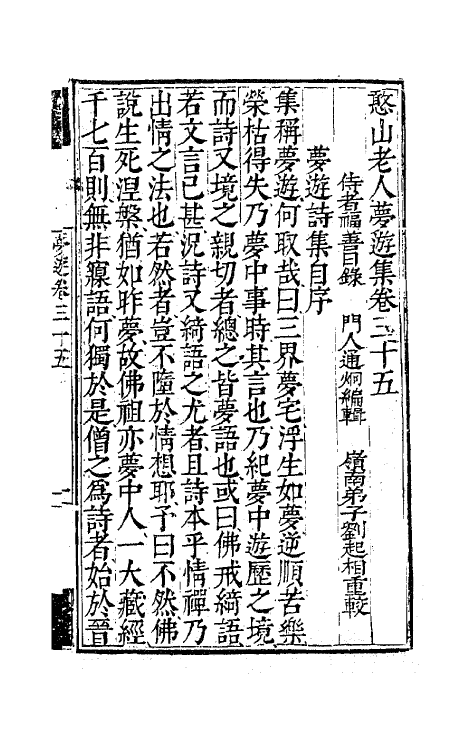 憨山老人夢遊集卷三十五
侍者福善日錄　門人通炯編輯　嶺南弟子劉起相重較
夢遊詩集自序
集稱夢遊何取哉曰三界夢宅浮生如夢逆順苦樂
榮枯得失乃夢中事時其言也乃紀夢中遊歷之境
而詩又境之親切者總之皆夢語也或曰佛戒綺語
若文言已甚況詩又綺語之尤者且詩本乎情禪乃
出情之法也若然者豈不墮於情想耶予曰不然佛
說生死涅槃猶如昨夢故佛祖亦夢中人一大藏經
千七百則無非寱語何獨於是僧之為詩者始於晉
夢遊卷三十五
一